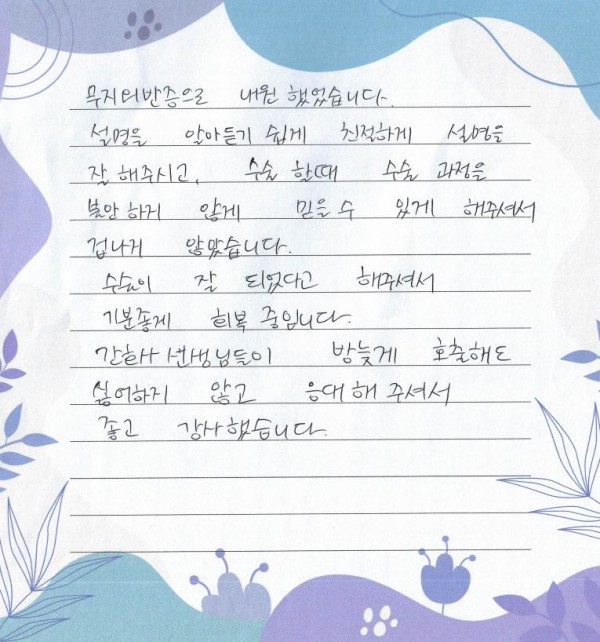 무지터반증으로 내원 했었습니다.
설명을 알아듣기 쉽게 친절하게 설명을
잘 해주시고, 수술 할때 수술 과정을
불안 하게 않게 믿을 수 있게 해주셔서
겁나게 않았습니다.
수술이 잘 되었다고 해주셔서
기분좋게 회복 중입니다.
간호사 선생님들이 밤늦게 호출해도
싫어하지 않고 응대 해 주셔서
좋고 감사했습니다.